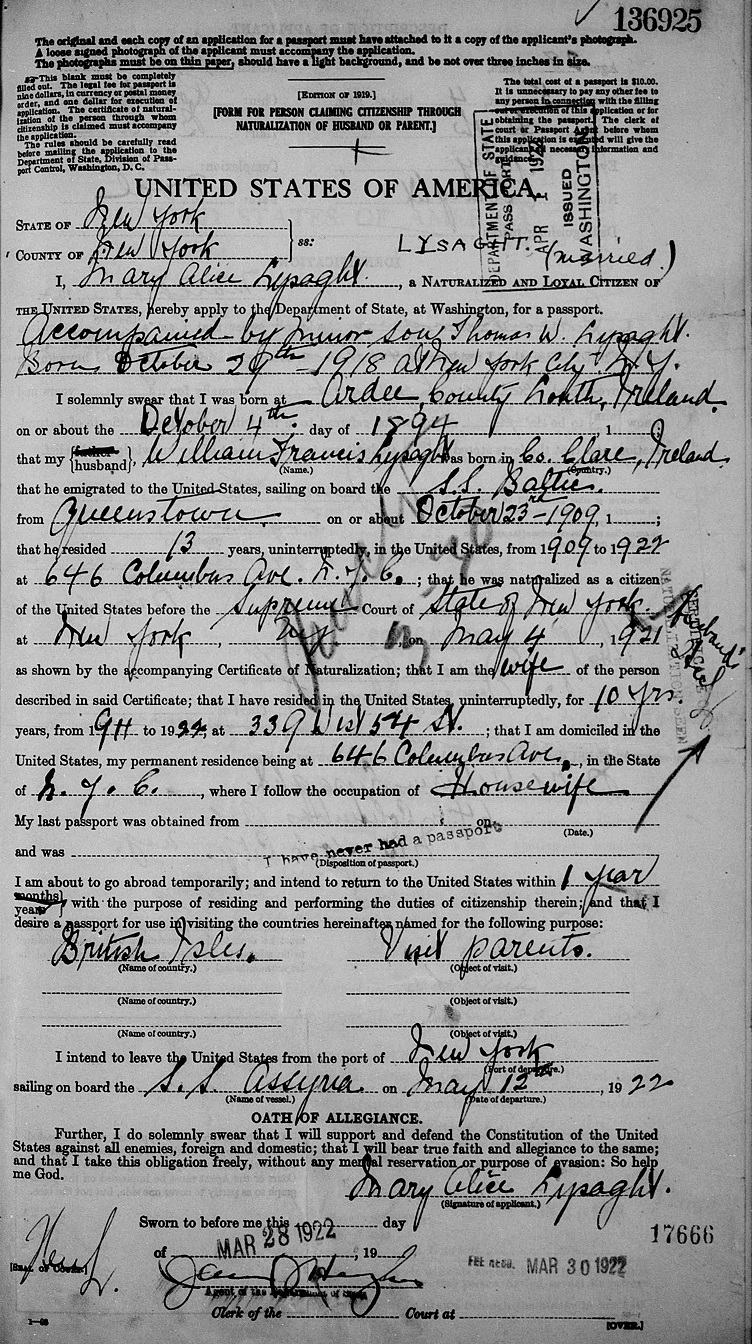 136925
The original and each copy of an application for a passport must have attached to it a copy of the applicant's photograph.
A loose signed photograph of the applicant must accompany the application.
The photographs must be on thin paper, should have a light background, and be not over three inches in size.
This blank must be completely
filled out. The legal fee for passport is
nine dollars, in currency or postal money
order, and one dollar for execution of
application. The certificate of natural-
ization of the person through whom
citizenship is claimed must accompany
the application.
The rules should be carefully read
before mailing the application to the
Department of State, Division of Pass-
port Control, Washington, D. C.
[EDITION OF 1919.]
[FORM FOR PERSON CLAIMING CITIZENSHIP THROUGH
NATURALIZATION OF HUSBAND OR PARENT.]
The total cost of a passport is $10.00.
It is unnecessary to pay any other fee to
any person in connection with the filling
out or execution of this application or for
obtaining the passport. The clerk of
court or Passport Agent before whom
this application is executed will give the
applicant necessary information and
guidance.
DEPARTMENT OF STATE
PASSPORT
APR 1 1922
ISSUED
WASHINGTON
UNITED STATES OF AMERICA.
STATE OF New York
COUNTY OF New York ss:
LYSAGHT. (married.)
I, Mary Alice Lysaght, a NATURALIZED AND LOYAL CITIZEN OF
THE UNITED STATES, hereby apply to the Department of State, at Washington, for a passport.
Accompanied by minor son, Thomas W. Lysaght.
Born October 29th - 1918 at New York City N.Y.
I solemnly swear that I was born at Ardee, County Louth, Ireland.
on or about the October 4th day of 1894 1
that my {father husband}, William Francis Lysaght was born in Co. Clare, Ireland.
(Name.) (Country.)
that he emigrated to the United States, sailing on board the S.S. Baltic.
from Queenstown on or about October 23rd - 1909, 1 ;
that he resided 13 years, uninterruptedly, in the United States, from 1909 to 1922
at 646 Columbus Ave. N.Y.C. ; that he was naturalized as a citizen
of the United States before the Supreme Court of State of New York.
at New York, NY, on May 4, 1921
Husband's
as shown by the accompanying Certificate of Naturalization; that I am the wife of the person
described in said Certificate; that I have resided in the United States, uninterruptedly, for 10 yrs.
years, from 1911 to 1922 at 339 West 54 St. ; that I am domiciled in the
United States, my permanent residence being at 646 Columbus Ave., in the State
of N.Y.C., where I follow the occupation of Housewife
My last passport was obtained from on
(Date.)
and was I have never had a passport
(Disposition of passport.)
I am about to go abroad temporarily; and intend to return to the United States within 1 year
{months years} with the purpose of residing and performing the duties of citizenship therein; and that I
desire a passport for use in visiting the countries hereinafter named for the following purpose:
British Isles. Visit parents.
(Name of country.) (Object of visit.)
(Name of country.) (Object of visit.)
(Name of country.) (Object of visit.)
I intend to leave the United States from the port of New York
(Port of departure.)
sailing on board the S.S. Assyria on May 12th, 1922
(Name of vessel.) (Date of departure.)
OATH OF ALLEGIANCE.
Further, I do solemnly swear that I will support and defend the Constitution of the United
States against all enemies, foreign and domestic; that I will bear true faith and allegiance to the same;
and that I take this obligation freely, without any mental reservation or purpose of evasion: So help
me God.
Mary Alice Lysaght.
(Signature of applicant.)
Sworn to before me this day
17666
of MAR 28 1922, 19
FEE RECD. MAR 30 1922
[SEAL OF COURT.]
Agent of the Department of State
Clerk of the Court at
1—68
[OVER.]